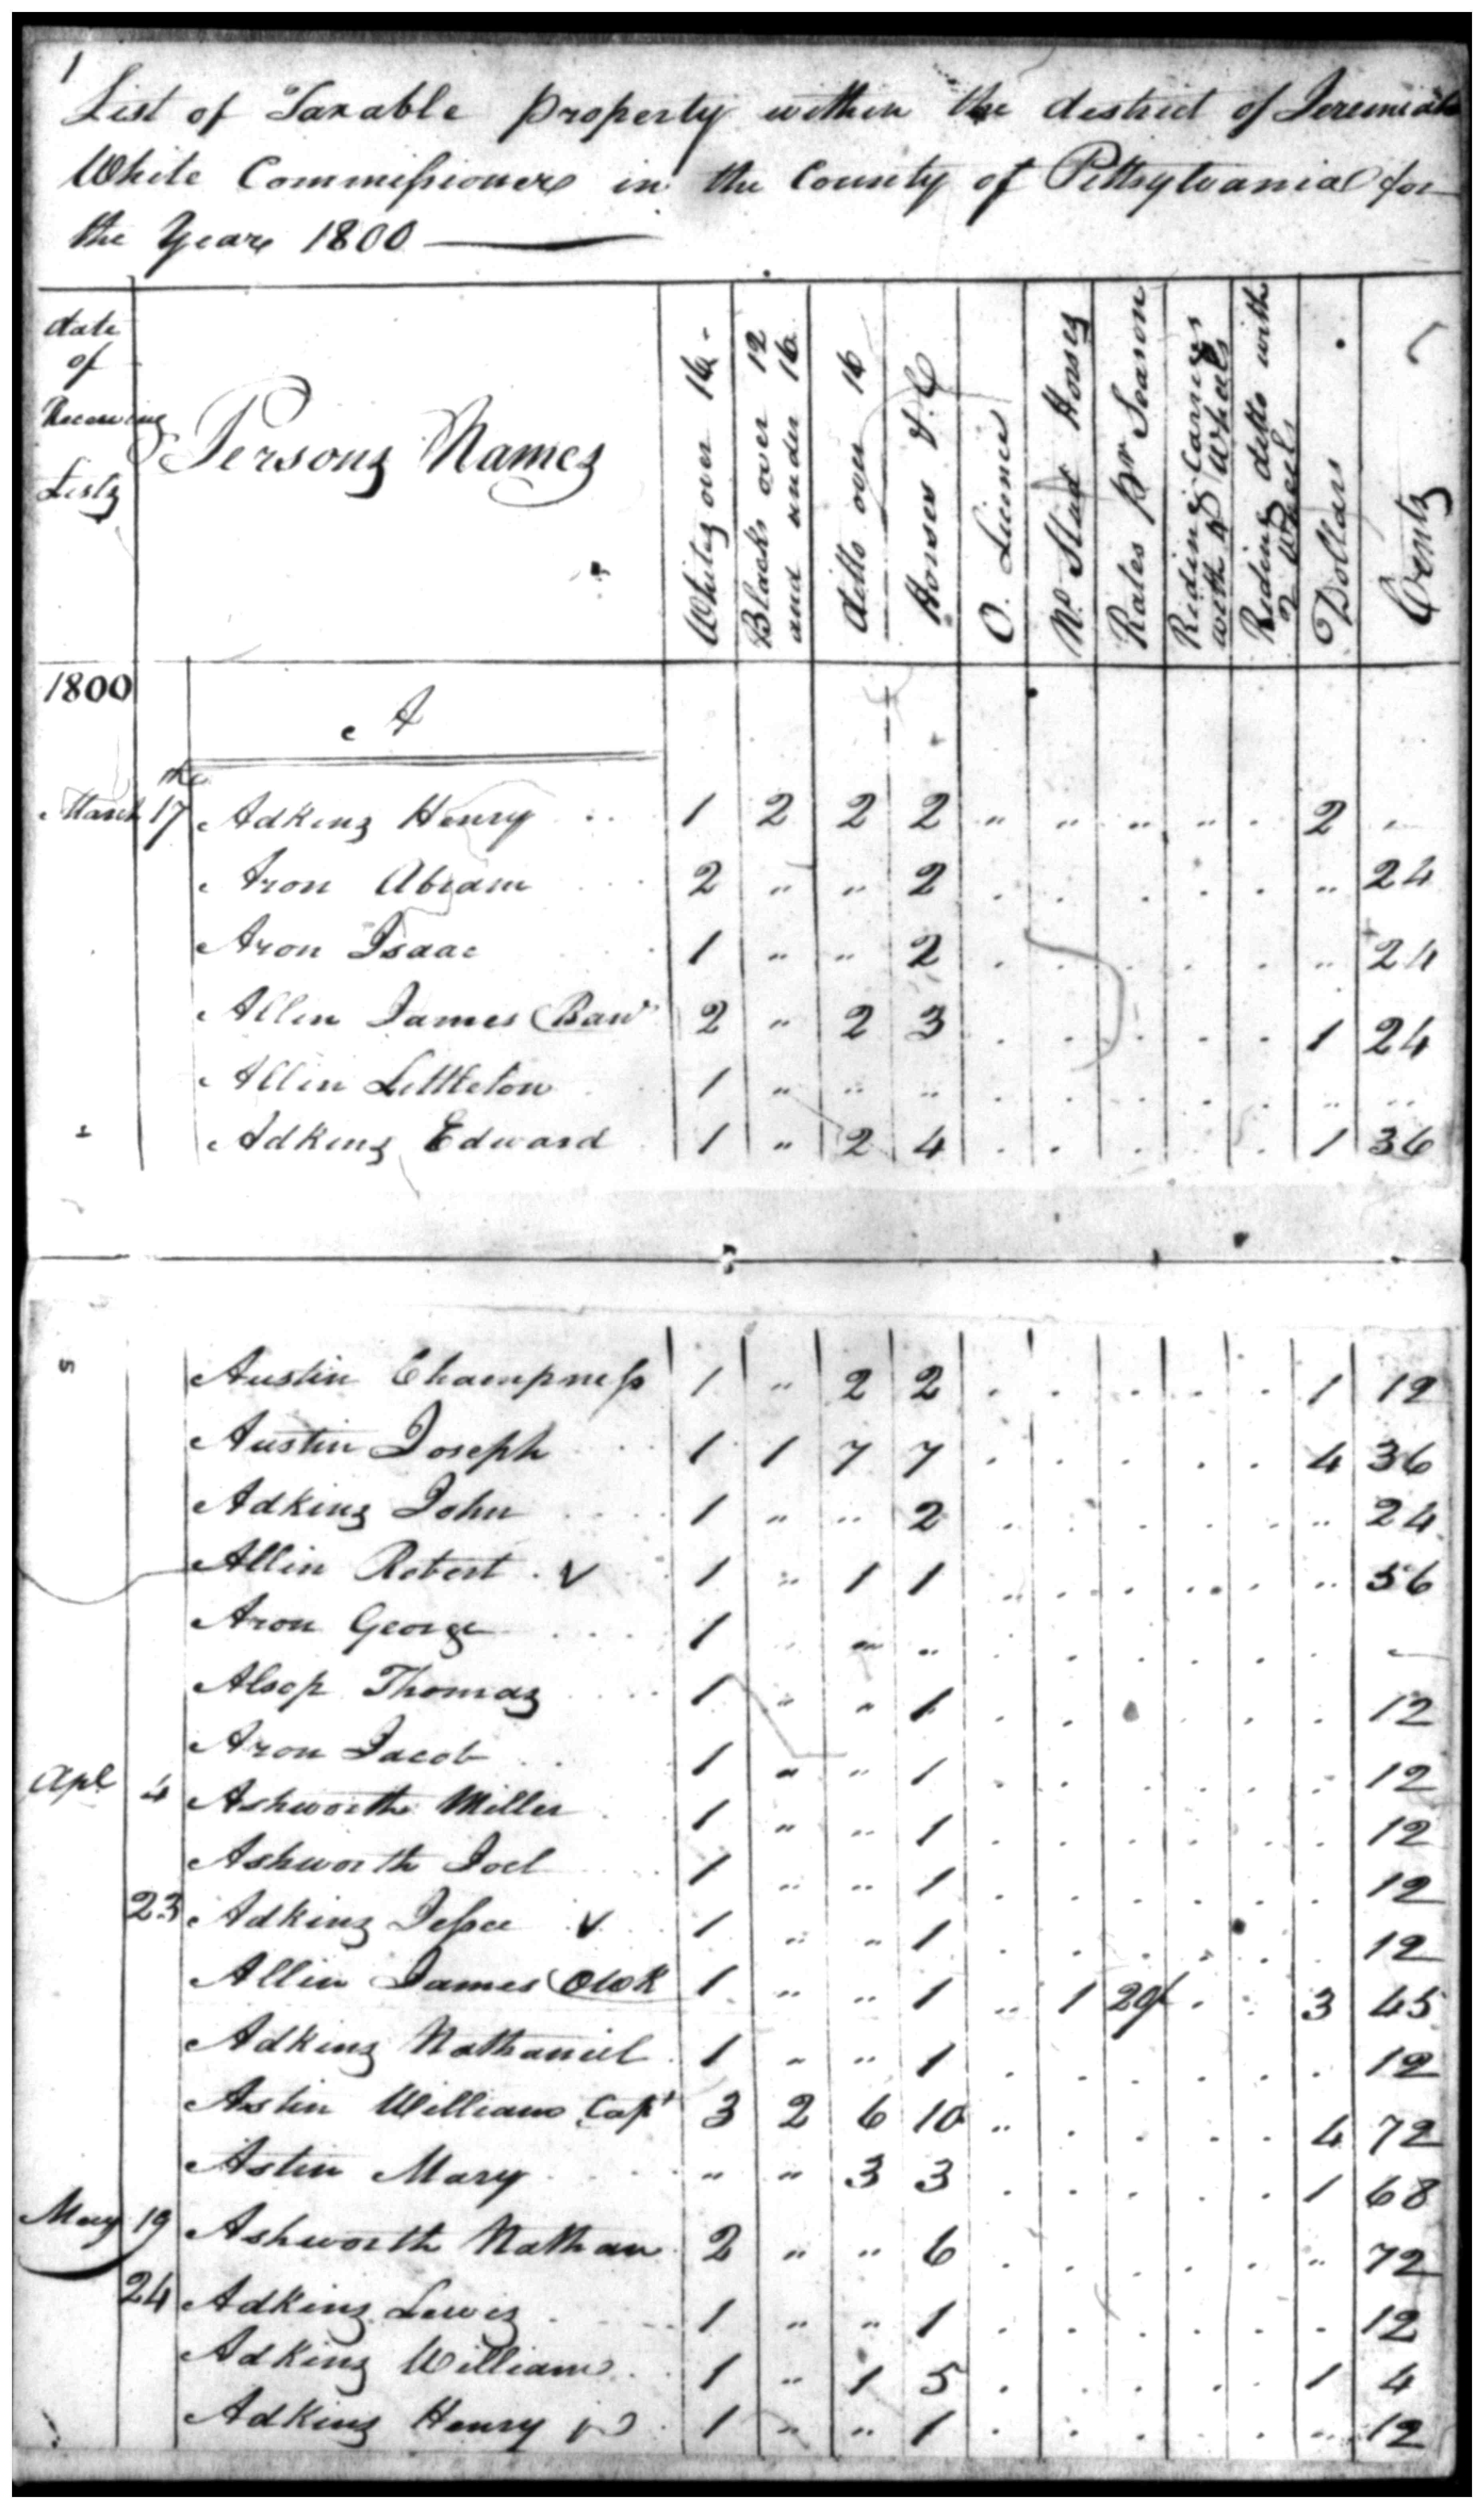 1
List of Taxable property within the district of Jeremiah
White Commissioner in the County of Pittsylvania for
the Year 1800
date of Receiving Lists
Persons Names
Whites over 16
Blacks over 12 and under 16
ditto over 16
Horses &.C
O. Licence
No. Stud Horses
Rates pr Season
Riding Carriages with 4 Wheels
Riding ditto with 2 Wheels
Dollars
Cents
1800
A
March 17th Adkins Henry 1 2 2 2 " " " " . 2 "
Aron Abram 2 " " 2 . . . . . " 24
Aron Isaac 1 " " 2 . . . . . " 24
Allin James (Ban 2 " 2 3 . . . . . 1 24
Allin Littleton 1 " " " . . . . . " "
Adkins Edward 1 " 2 4 . . . . . 1 36
Austin Champness 1 " 2 2 . . . . . 1 12
Austin Joseph 1 1 7 7 . . . . . 4 36
Adkins John 1 " " 2 . . . . . " 24
Allin Robert . v 1 " 1 1 " . . . . " 56
Aron George 1 " " " . . . . . . "
Alsop Thomas 1 " " 1 . . . . . . 12
Aron Jacob 1 " " 1 . . . . . . 12
Apl 4 Ashworth Miller 1 " " 1 . . . . . . 12
Ashworth Joel 1 " " 1 . . . . . . 12
23 Adkins Jesse v 1 " " 1 . . . . . . 12
Allin James 1 " " 1 " 1 20/ . . 3 45
Adkins Nathaniel 1 " " 1 . . . . . . 12
Astin William Capt 3 2 6 10 " . . . . 4 72
Astin Mary " " 3 3 . . . . . 1 68
May 19 Ashworth Nathan 2 " " 6 . . . . . " 72
24 Adkins Lewis 1 " " 1 . . . . . . 12
Adkins William 1 " 1 5 . . . . . 1 4
Adkins Henry 1 " " 1 . . . . . " 12